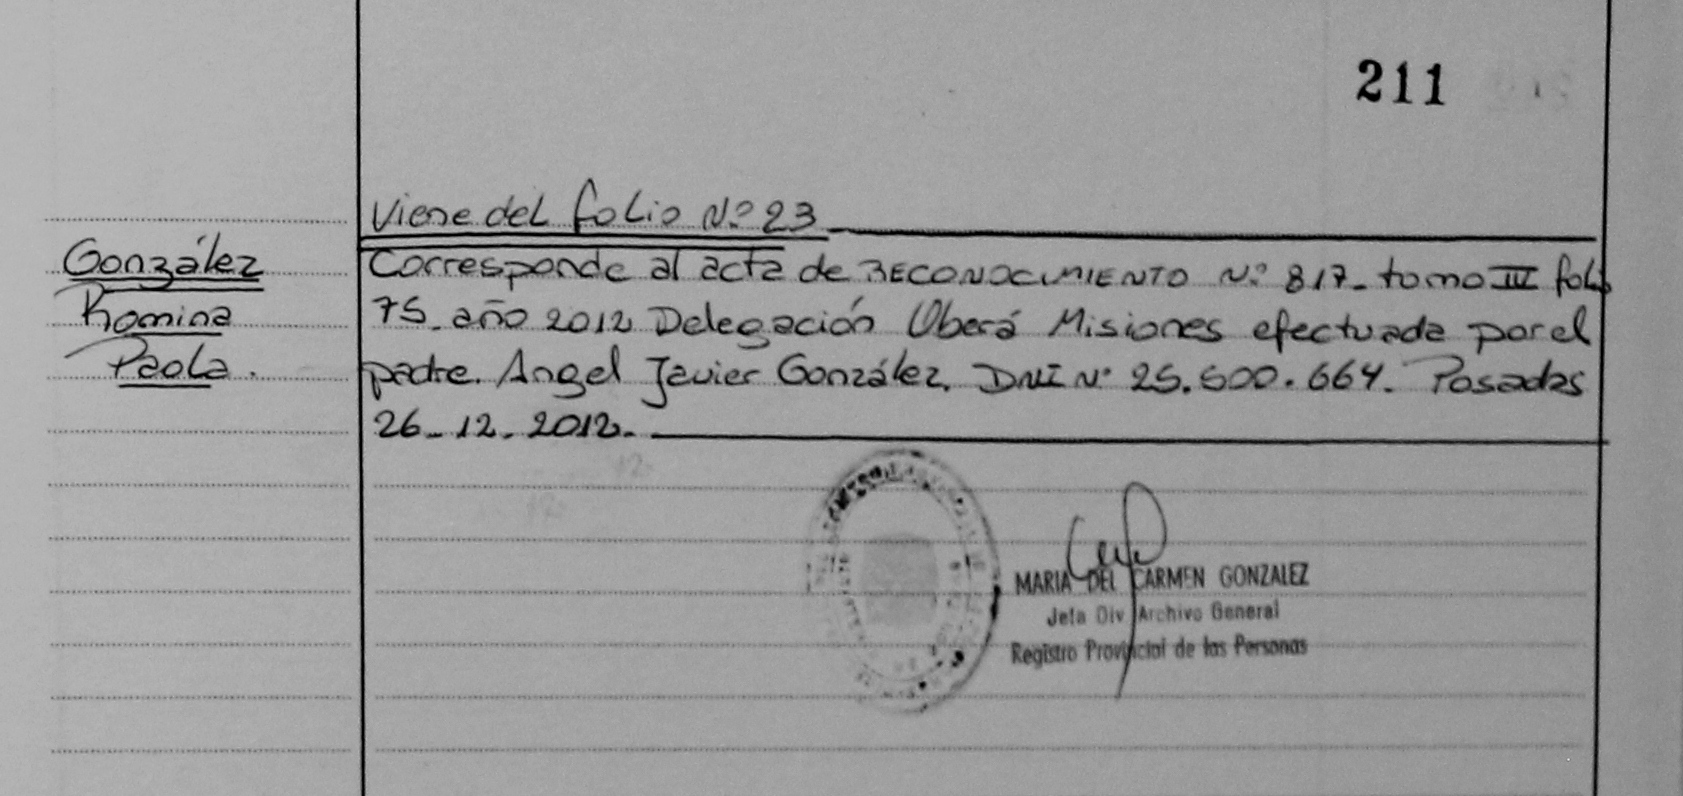 211
Viene del folio Nº 23
González
Romina
Paola.
Corresponde al acta de RECONOCIMIENTO Nº 817- tomo III folio
75- año 2012 Delegación Oberá Misiones efectuada por el
padre. Angel Javier González, DNI Nº 25.500.664. Posadas
26-12-2012-
MARIA DEL CARMEN GONZALEZ
Jefa Div Archivo General
Registro Provincial de las Personas